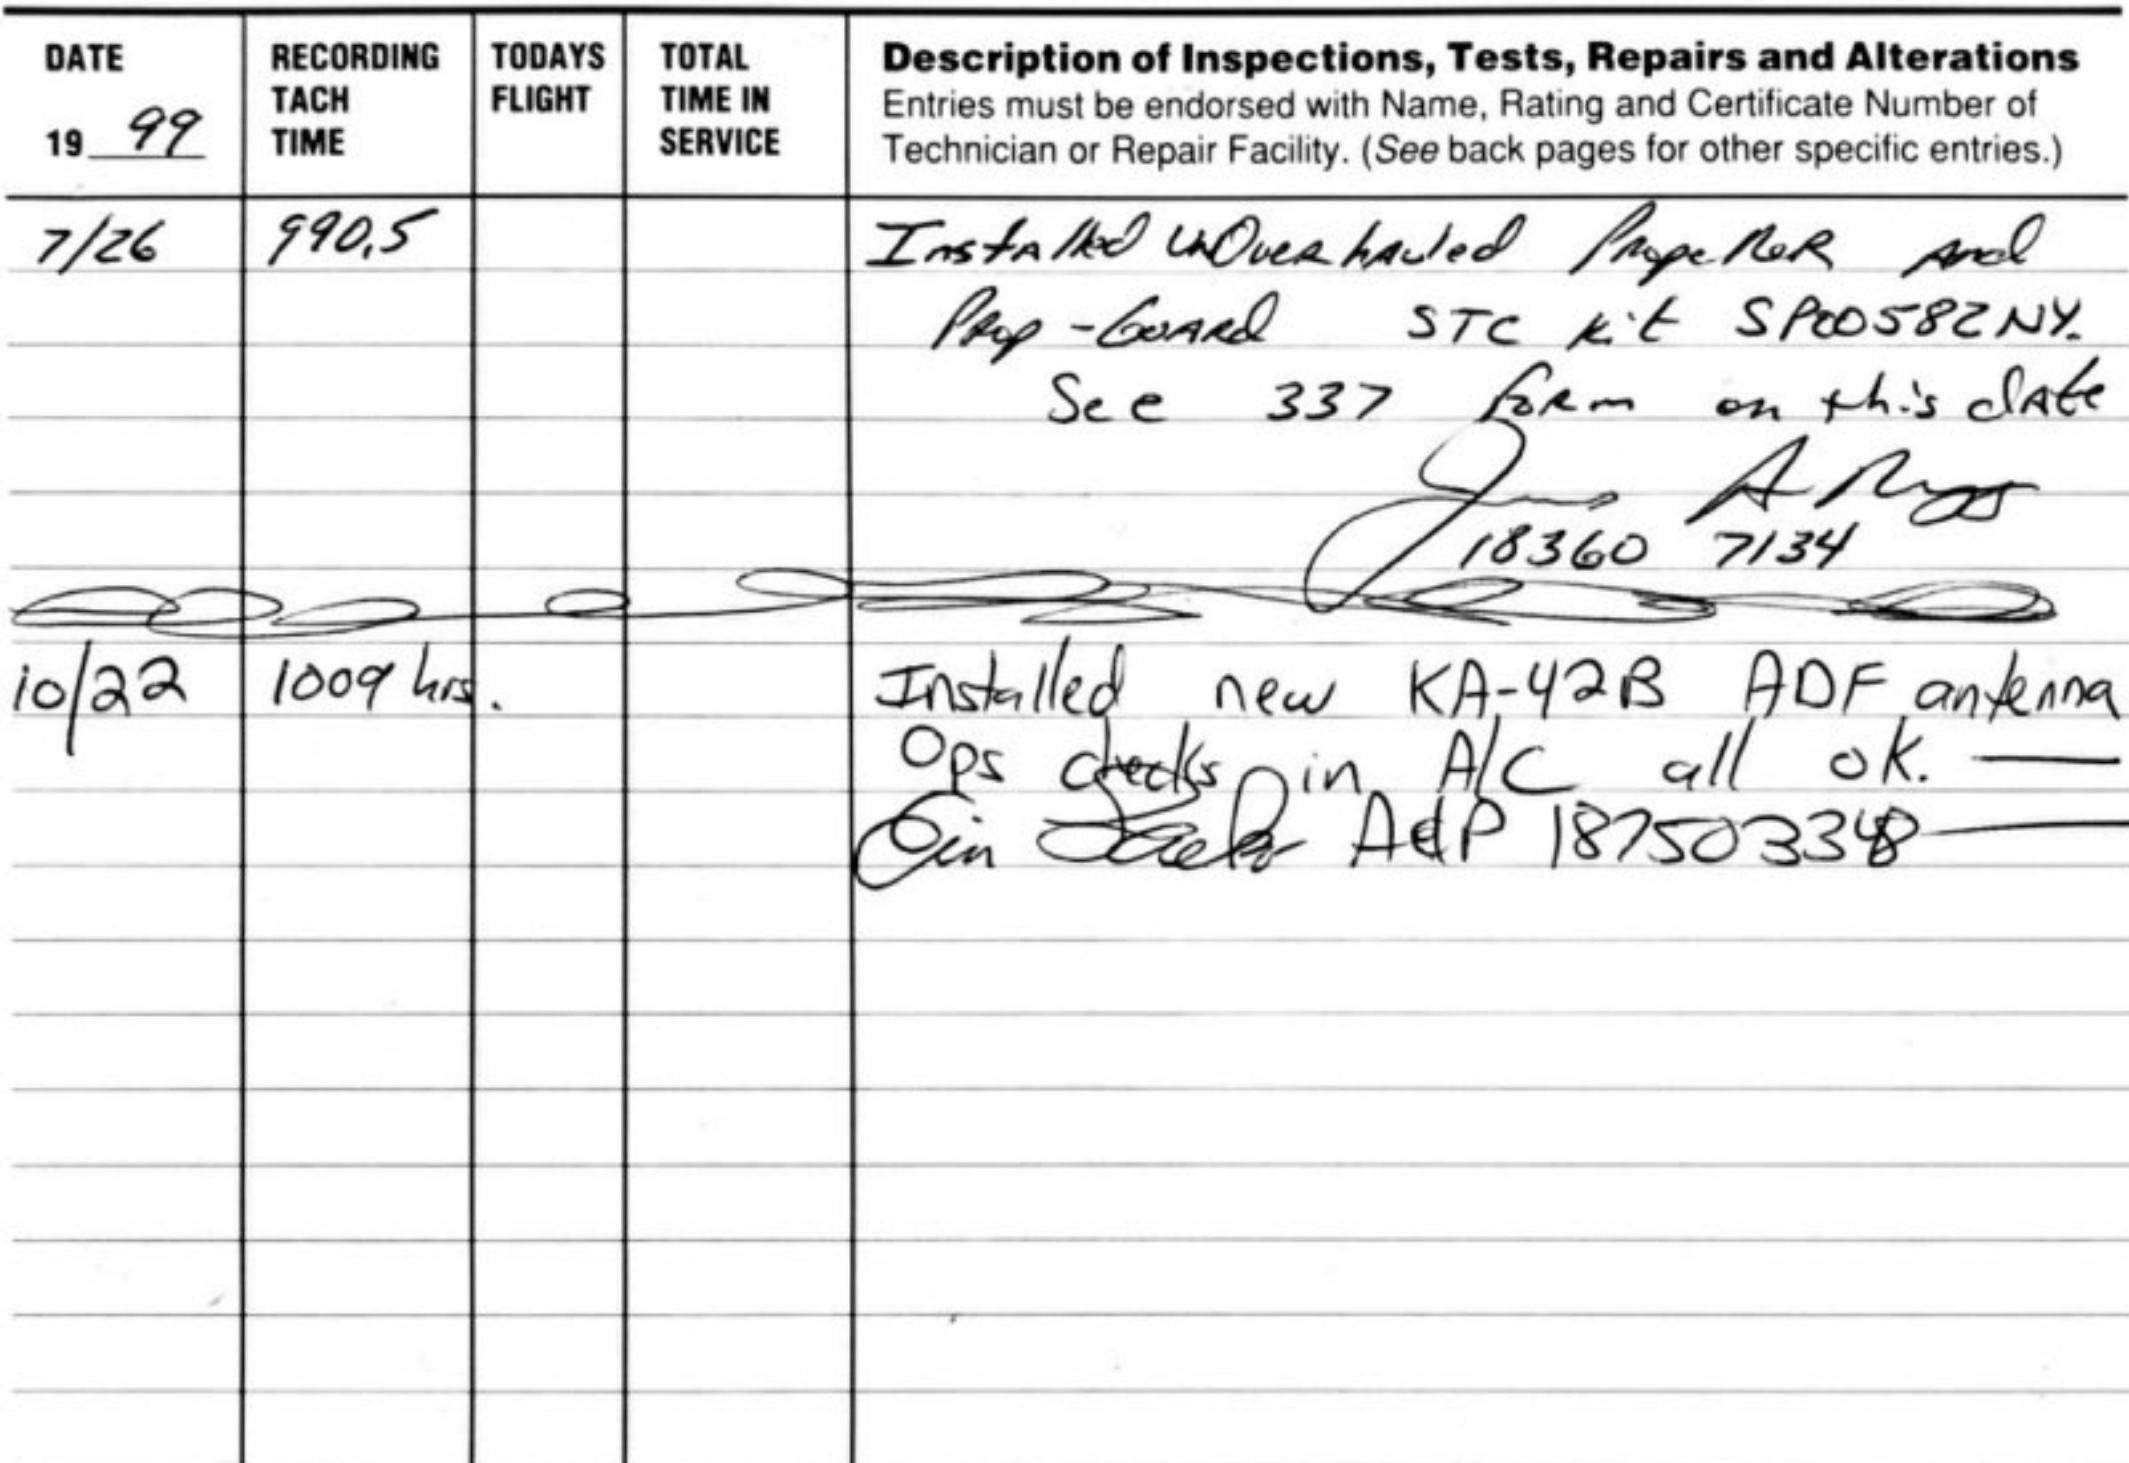 DATE RECORDING TODAYS TOTAL Description of Inspections, Tests, Repairs and Alterations
TACH FLIGHT TIME IN Entries must be endorsed with Name, Rating and Certificate Number of
19 99 TIME SERVICE Technician or Repair Facility. (See back pages for other specific entries.)
7/26 990.5 Installed unOverhauled Propeller and
Prop-Guard STC kit SP00582NY.
See 337 form on this date
James A Riggs
18360 7134
10/22 1009 hrs. Installed new KA-42B ADF antenna
Ops checks in A/C all ok.
A&P 187503348